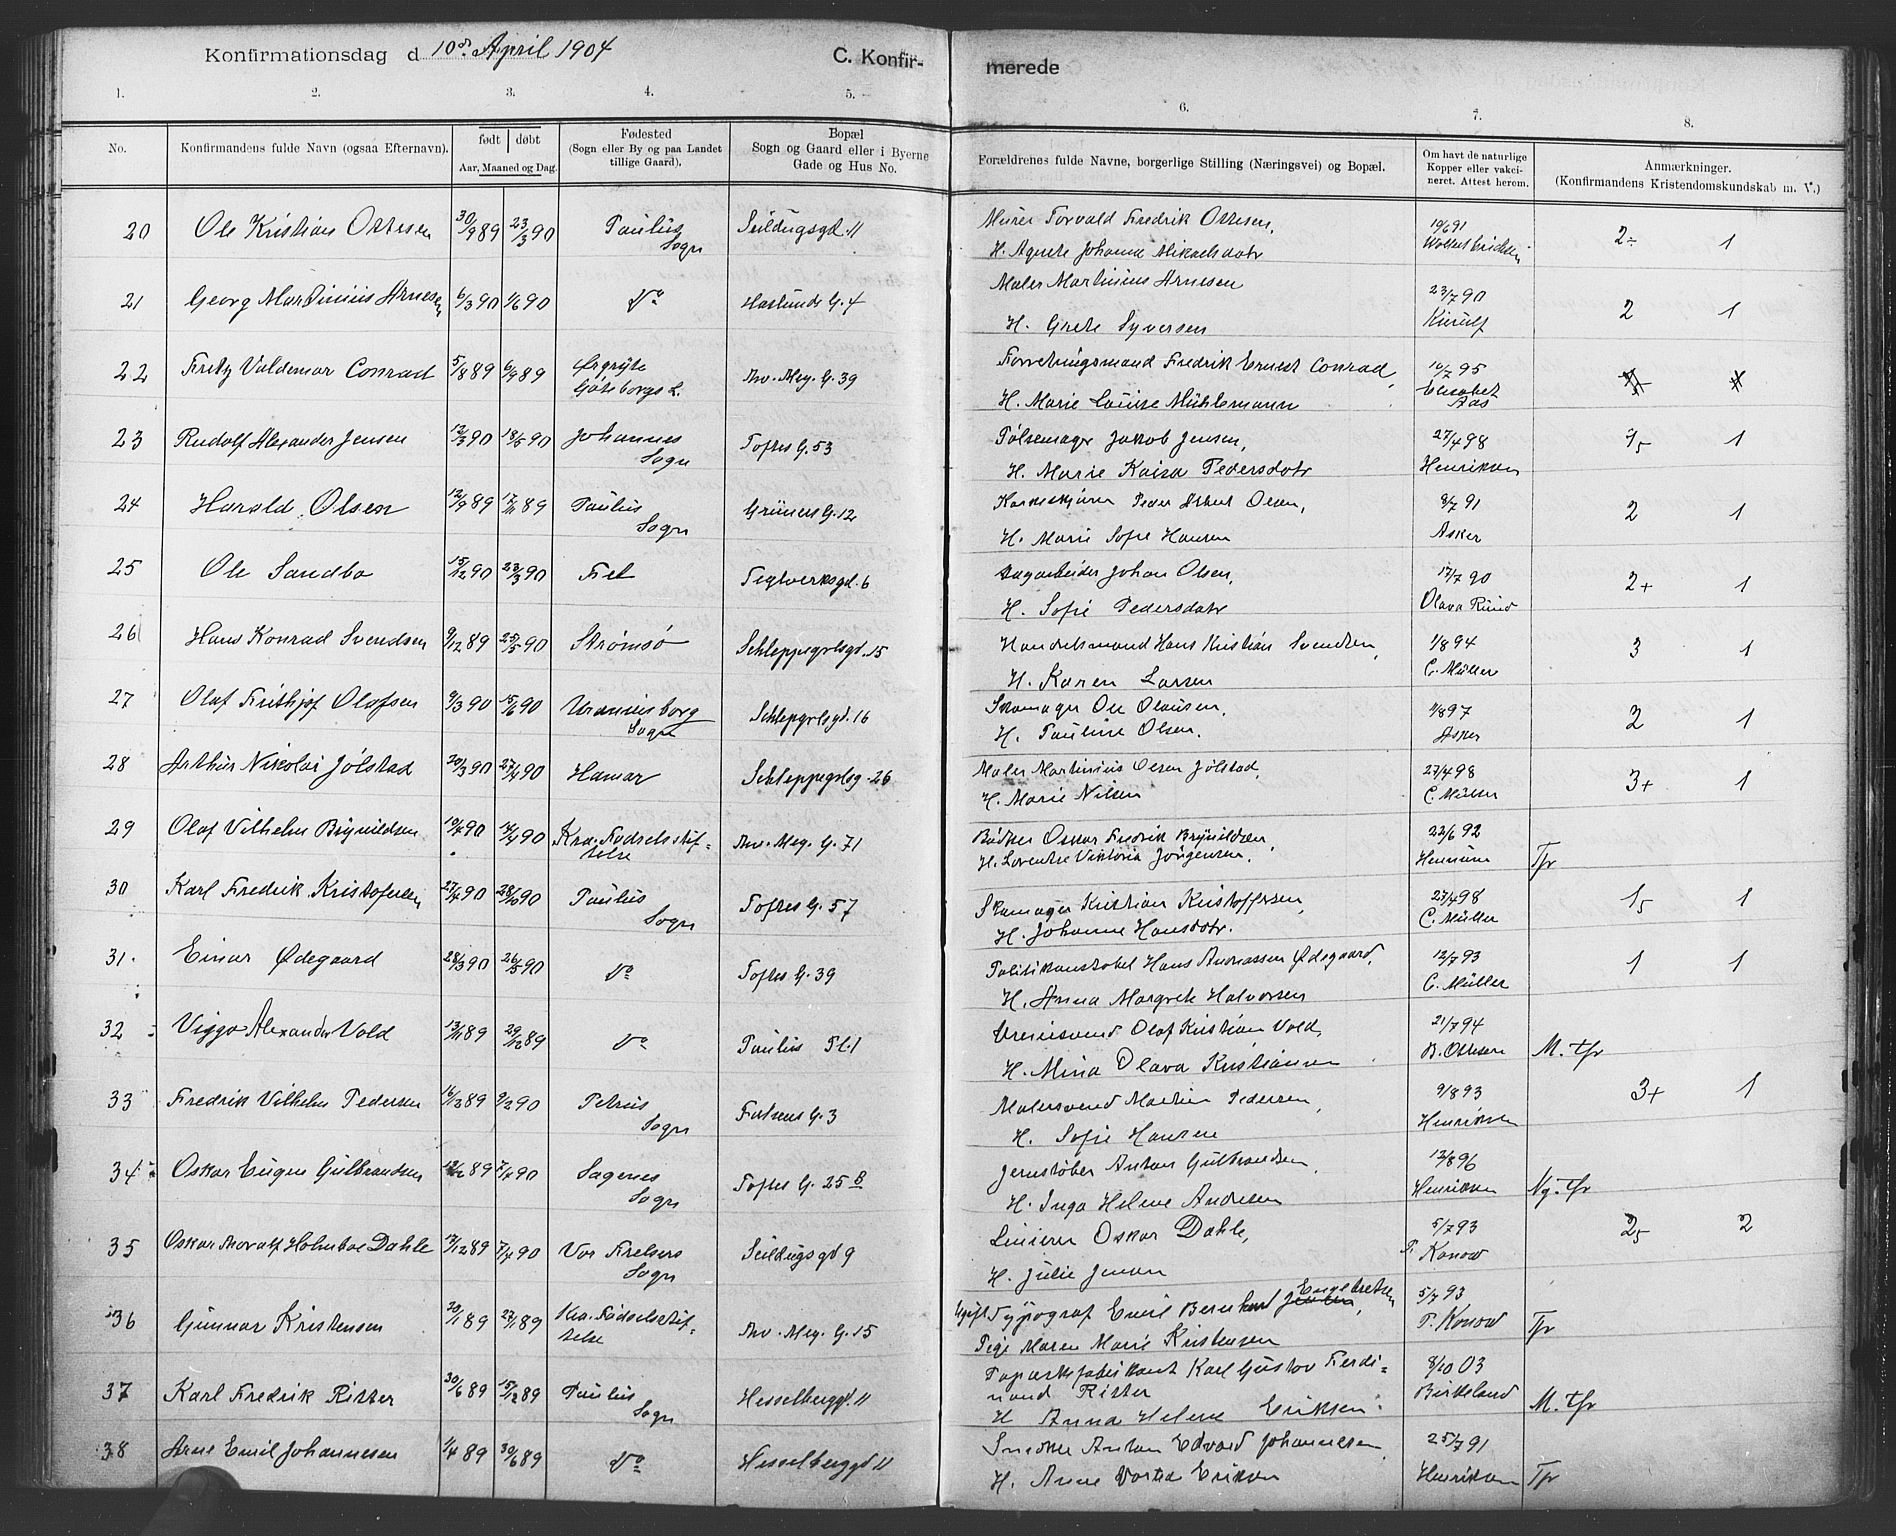 Konfirmationsdag d 10de April 1904
C. Konfir-
merede
1. 2. 3. 4. 5. 6. 7. 8.
No.
Konfirmandens fulde Navn (ogsaa Efternavn).
født døbt
Aar, Maaned og Dag.
Fødested
(Sogn eller By og paa Landet
tillige Gaard).
Bopæl
Sogn og Gaard eller i Byerne
Gade og Hus No.
Forældrenes fulde Navne, borgerlige Stilling (Næringsvei) og Bopæl.
Om havt de naturlige
Kopper eller vakci-
neret. Attest herom.
Anmærkninger.
(Konfirmandens Kristendomskundskab m. V.)
20 Ole Kristian Ottesen 30/9 89 23/3 90 Paulus Seildugsgd. 11 Murer Torvald Fredrik Ottesen, 10/6 91 2÷ 1
Sogn H. Agnete Johanne Mikaelsdatr
21 Georg Martinius Arnesen 6/3 90 1/6 90 Do Haslunds G. 4 Maler Martinius Arnesen 23/7 90 2 1
H. Grete Syversen Kierulf
22 Fritz Valdemar Conrad 5/8 89 6/9 89 Ørgryte Thv. Mey. G. 39 Forretningsmand Fredrik Ernest Conrad, 10/7 95
Göteborgs L. H. Marie Louise Mühlemann Elisabet Aas
23 Rudolf Alexander Jensen 12/3 90 18/5 90 Johannes Toftes G. 53 Pølsemager Jakob Jensen, 27/4 98 1
Sogn H. Marie Kaisa Pedersdatr Henriksen
24 Harald Olsen 12/9 89 17/11 89 Paulus Grüners G. 12 Peder Olsen, 8/7 91 2 1
Sogn H. Marie Sofie Hansen Asker
25 Ole Sandbo 15/12 90 23/3 90 Fet Teglverksgd. 6 Dagarbeider Johan Olsen, 17/7 90 2+ 1
H. Sofie Pedersdatr Olava Ruud
26 Hans Konrad Svendsen 9/12 89 25/5 90 Strømsø Schleppegrlsgd. 15 Handelsmand Hans Kristian Svendsen, 1/8 94 3 1
H. Karen Larsen C. Müller
27 Olaf Frithjof Olafsen 9/3 90 15/6 90 Uranienborg Schlepgrlsgd. 16 Skomager Ole Olausen, 11/8 97 2 1
Sogn H. Pauline Olsen. Asker
28 Arthur Nikolai Jølstad 20/3 90 27/4 90 Hamar Schleppegrlsg. 26 Maler Martinius Olsen Jølstad, 27/4 98 3+ 1
H. Marie Nilsen C. Müller
29 Olaf Vilhelm Brynildsen 10/2 90 14/4 90 Kra. Fødselsstif- Thv. Mey. G. 71 Bødker Oskar Fredrik Brynildsen, 22/6 92
telse H. Lorentse Viktoria Jørgensen. Tfr
30 Karl Fredrik Kristofersen 27/4 90 28/10 90 Paulus Toftes G. 57 Skomager Kristian Kristoffersen, 27/4 98 15 1
Sogn H. Johanne Hansdatr. C. Müller
31. Einar Ødegaard 28/3 90 26/5 90 Do Toftes G. 39 Politikonstabel Hans Andreassen Ødegaard, 12/7 93 1 1
H. Anna Margrete Halvorsen C. Müller
32 Viggo Alexander Vold 13/11 89 29/12 89 Do Paulus Pl. 1 Olaf Kristian Vold, 21/7 94
H. Mina Olava Kristiansen B. Ottesen M. tfr
33 Fredrik Vilhelm Pedersen 16/12 89 9/2 90 Petrus Fostvens G. 3 Malersvend Martin Pedersen, 9/8 93 3+ 1
Sogn H. Sofie Hansen Henriksen
34 Oskar Eugen Gulbrandsen 12/12 89 7/4 90 Sagenes Toftes G. 25 B Jernstøber Anton Gulbrandsen, 12/8 96
Sogn H. Inga Helene Andresen Henriksen Ny. tfr
35 Oskar Thorvalf Holmboe Dahle 7/12 89 7/4 90 Vor Frelsers Seildugsgd 9 Linierer Oskar Dahle, 5/7 93 25 2
Sogn H. Julie Jensen T. Konow
36 Gunnar Kristensen 20/1 89 27/1 89 Kra. Fødselsstif- Thv. Mey. G. 15 Ugift Typograf Emil Bernhard Engebretsen, 5/7 93
telse Pige Maren Marie Kristensen T. Konow Tfr
37 Karl Fredrik Ritter 30/6 89 15/12 89 Paulus Hesselbergd. 11 Karl Gustav Ferdi- 8/10 03
Sogn nand Ritter Birkeland
H Anna Helene Eriksen. M. tfr
38 Arne Emil Johannesen 1/4 89 30/6 89 Do Hesselberggd 11 Snedker Anton Edvard Johannesen 25/7 91
H. Anne Eriksen Henriksen Tfr